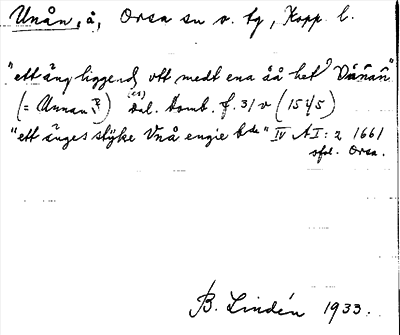 Unån, å, Orsa sn o. tg, Kopp. l.
"ett äng liggend vtt medt ena åå het Vånån"
(= Unnan?) (es) Dal. domb. f. 31 v (1545)
"ett änges stÿke Vnå engie bde" IV AI: 2 1661
ofol. Orsa.
B. Lindén 1933.